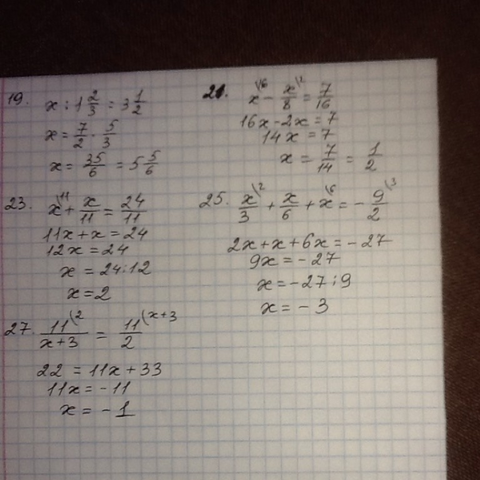 19. x : 1 2/3 = 3 1/2
x = 7/2 · 5/3
x = 35/6 = 5 5/6
21. x\16 - x/8\2 = 7/16
16x - 2x = 7
14x = 7
x = 7/14 = 1/2
23. x\11 + x/11 = 24/11
11x + x = 24
12x = 24
x = 24:12
x = 2
25. x/3\2 + x/6 + x\6 = - 9/2\3
2x + x + 6x = -27
9x = -27
x = -27:9
x = -3
27. 11/x+3\2 = 11/2\x+3
22 = 11x + 33
11x = -11
x = -1